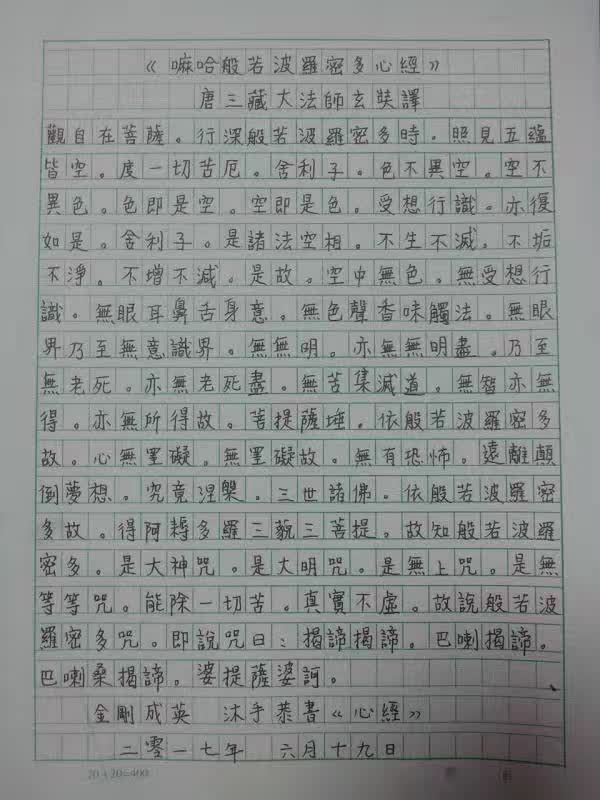 《嘛哈般若波羅密多心經》
唐三藏大法師玄奘譯
觀自在菩薩。行深般若波羅密多時。照見五蘊
皆空。度一切苦厄。舍利子。色不異空。空不
異色。色即是空。空即是色。受想行識。亦復
如是。舍利子。是諸法空相。不生不滅。不垢
不淨。不增不減。是故。空中無色。無受想行
識。無眼耳鼻舌身意。無色聲香味觸法。無眼
界乃至無意識界。無無明。亦無無明盡。乃至
無老死。亦無老死盡。無苦集滅道。無智亦無
得。亦無所得故。菩提薩埵。依般若波羅密多
故。心無罣礙。無罣礙故。無有恐怖。遠離顛
倒夢想。究竟涅槃。三世諸佛。依般若波羅密
多故。得阿耨多羅三藐三菩提。故知般若波羅
密多。是大神咒。是大明咒。是無上咒。是無
等等咒。能除一切苦。真實不虛。故說般若波
羅密多咒。即說咒曰：揭諦揭諦。巴喇揭諦。
巴喇桑揭諦。婆提薩婆訶。
金剛成英 沐手恭書《心經》
二零一七年 六月十九日
20×20=400